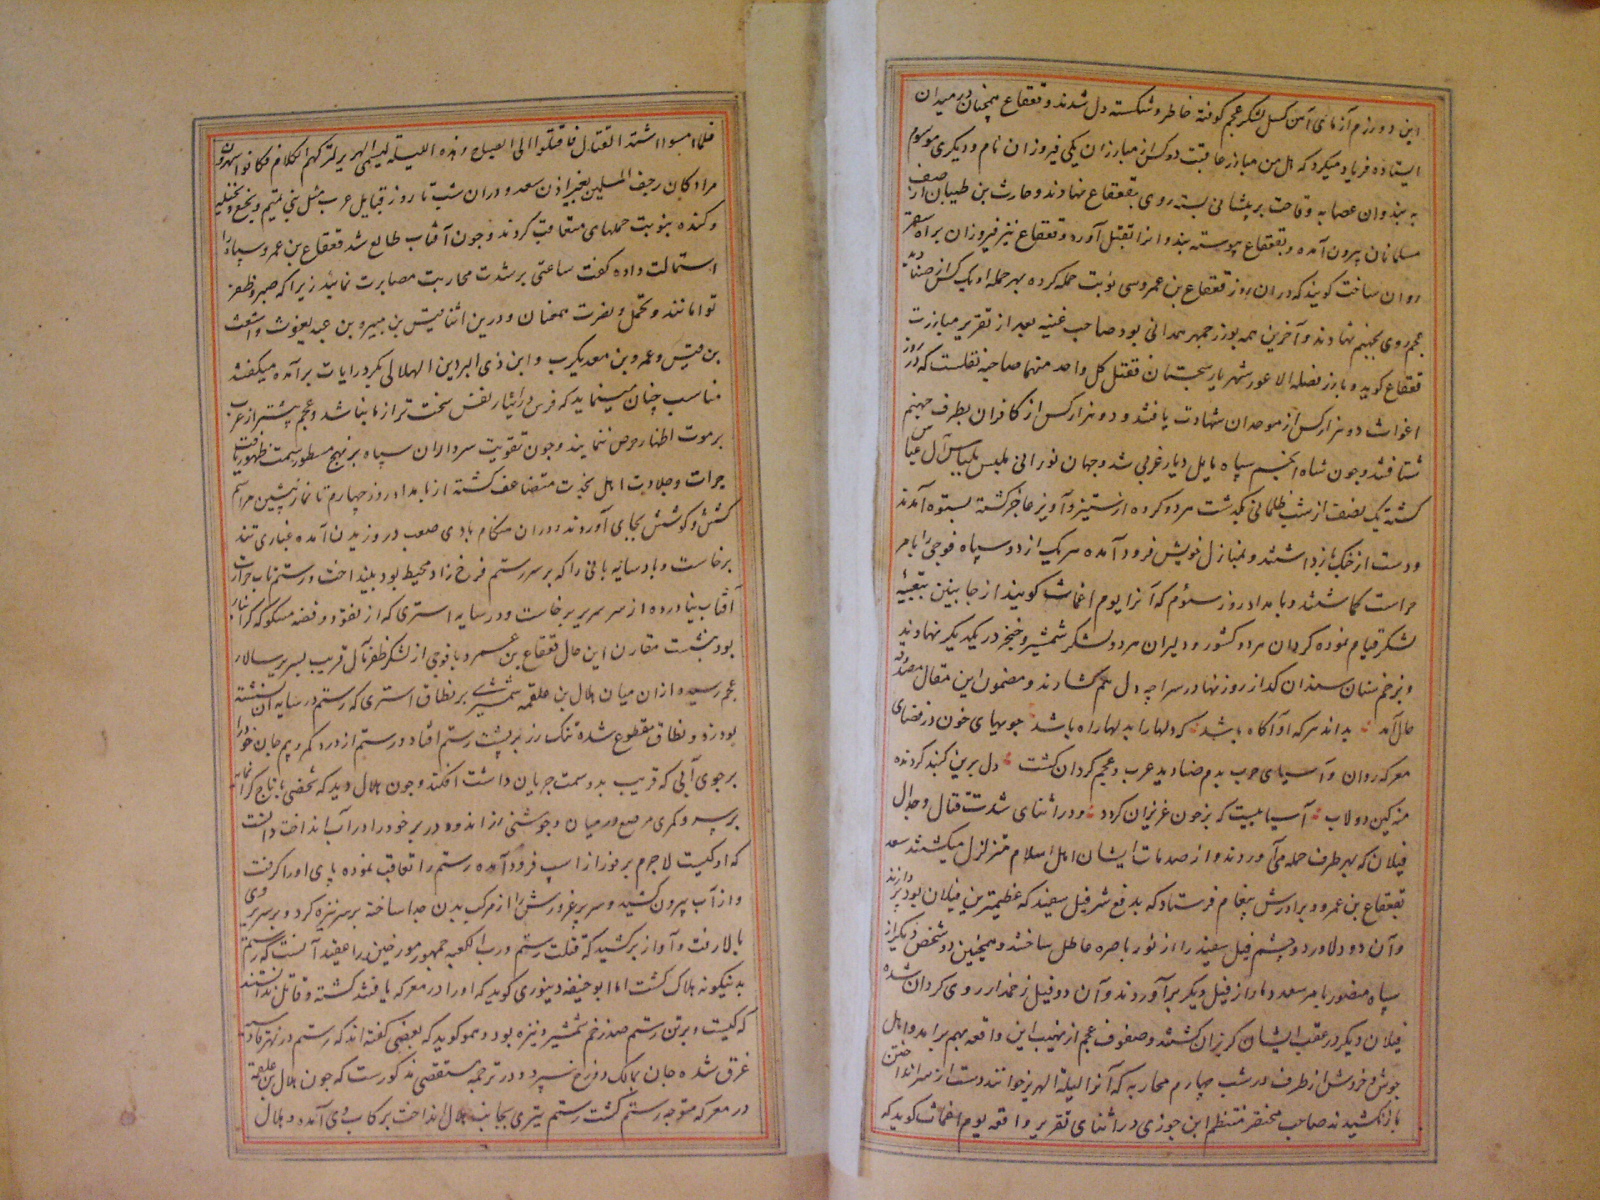 این دو رزم آزمای آهن کسل لشکر عجم کوفته خاطر و شکسته دل شدند و قعقاع همچنان در میدان
ایستاده فریاد میکرد که هل من مبارز عاقبت دو کس از مبارزان یکی فیروزان نام و دیگری موسوم
به بندوان عصابه وقاحت بر پیشانی بسته روی بقعقاع نهادند و حارث بن طبیان از صف
مسلمانان بیرون آمده و بقعقاع پیوسته بندوانرا بقتل آورد و قعقاع نیز فیروزان براه سقر
روان ساخت کویند که دران روز قعقاع بن عمرو سی نوبت حمله کرده بهر حمله او یک کس از صنادید
عجم روی بجهنم نهادند و آخرین همه بوزرجمهر همدانی بود صاحب غنیه بعد از تقریر مبارزت
قعقاع کوید و بارز نضله الاعور شهریار سجستان فقتل کل واحد منهما صاحبه نقلست که در روز
اغواث دو هزار کس از موحدان شهادت یافتند و ده هزار کس از کافران بطرف جهنم
شتافتند و چون شاه انجم سپاه مایل دیار غربی شد و جهان نورانی ملبس بلباس آل عباس
کشته یک نصف از شب ظلمانی بکذشت هر دو کروه از ستیز و آویز عاجز کشته بستوه آمدند
و دست از جنک باز داشتند و بمنازل خویش فرود آمده هر یک از دو سپاه فوجی را بامر
حراست کماشتند و بامداد روز سوم که آنرا یوم اغماث کویند از جانبین بتعبیه
لشکر قیام نموده کردان هر دو کشور و دلیران هر دو لشکر شمشیر و خنجر در یکدیکر نهادند
و بزخم سنان سندان کداز روز نها در سراچه دل هم کشادند و مضمون این مقال مصدوقه
حال آمد بداند هر که او آکاه باشد که دلها را بدلها راه باشد جویهای خون در فضای
معرکه روان و آسیای حرب بدم صنادید عرب و عجم کردان کشت دل برین کنبد کردنده
منه کین دولاب آسیاییست که بر خون عزیزان کردد و در اثنای شدت قتال و جدال
فیلان که بهر طرف حمله می آوردند و از صدمات ایشان اهل اسلام متزلزل میکشتند سعد
بقعقاع بن عمرو و برادرش پیغام فرستاد که بدفع شر فیل سفید که عظیمترین فیلان بود پردازند
و آن دو دلاور دو چشم فیل سفید را از نور باصره عاطل ساختند و همچنین دو شخص دیکر از
سپاه منصور بامر سعد دمار از فیل دیکر برآوردند و آن دو فیل زخمدار روی کردان شده
فیلان دیکر در عقب ایشان کریزان کشتند و صفوف عجم از نهیب این واقعه بهم برآمد و اهل
جوش و خروش از طرف در شب چهارم محاربه که آنرا لیلة الهریر خوانند دست از سر انداختن
باز نکشیدند صاحب مختصر منتظم ابن جوزی در اثنای تقریر واقعه یوم اغماث کوید که
فلما امسوا اشتد القتال فاقتتلوا الی الصباح و هذه اللیلة لیسمی الهریر لترکهم الکلام فکانوا یهرون
مراد کان زحف المسلمین بغیر اذن سعد و دران شب تا روز قبایل عرب مثل بنی تمیم و نخع و بجیله
و کنده بنوبت حملهای متعاقب کردند و چون آفتاب طالع شد قعقاع بن عمرو سپاه را
استمالت داده کفت ساعتی بر شدت محاربت مصابرت نمائید زیرا که صبر و ظفر
توامانند و تحمل و نصرت همعنان و درین اثنا قیس بن هبیره بن عبد یغوث و اشعث
بن قیس و عمرو بن معدیکرب و ابن ذی البردین الهلالی بکرد رایات برآمده میکفتند
مناسب چنان مینماید که فرس در ایثار نفس سخت تر از ما نباشد و عجم پیشتر از عرب
بر موت اظهار حرص ننمایند و چون تقویت سرداران سپاه بر نهج مسطور سمت ظهور یافت
جرات و جلادت اهل نجدت متضاعف کشته از بامداد روز چهارم تا نماز پیشین مراسم
کشش و کوشش بجای آوردند و دران هنکام بادی صعب در وزیدن آمده غباری تند
برخاست و باد سایه بانی را که بر سر رستم فرخ زاد محیط بود بینداخت و رستم تاب حرارت
آفتاب نیاورده از سر سریر برخاست و در سایه استری که از نقود و فضه مسکوکه کرانبار
بود بنشست مقارن این حال قعقاع بن عمرو با فوجی از لشکر ظفر مآل قریب بسریر سالار
عجم رسید و ازان میان هلال بن علقمه شمشیری بر نطاق استری که رستم در سایه آن نشسته
بود زد و نطاق مقطوع شده تنک زر بر پشت رستم افتاد و رستم از درد کمر و بیم جان خود را
بر جوی آبی که قریب بدو سمت جریان داشت افکند و چون هلال دید که شخصی با تاج کرانمایه
بر سر و کمری مرصع در میان و جوشنی زر اندود در بر خود را در آب انداخت دانست
که او کیست لاجرم بر فور از اسپ فرود آمده رستم را تعاقب نموده پای او را کرفت
و از آب بیرون کشید و سر پر غرورش را از مرکب بدن جدا ساخته بر سر نیزه کرد و بر سریر وی
بالا رفت و آواز برکشید که قتلت رستم و رب الکعبه جمهور مورخین را عقیده آنست که رستم
بدینکونه هلاک کشت اما ابوحنیفه دینوری کوید که او را در معرکه یافتند کشته و قاتل ندانستند
که کیست و بر تن رستم صد زخم شمشیر و نیزه بود و همو کوید که بعضی کفته اند که رستم در نهر قادسیه
غرق شده جان بمالک دوزخ سپرد و در ترجمه مستقصی مذکورست که چون هلال بن علقمه
در معرکه متوجه رستم کشت رستم تیری بجانب هلال انداخت بر کاب وی آمده و هلال